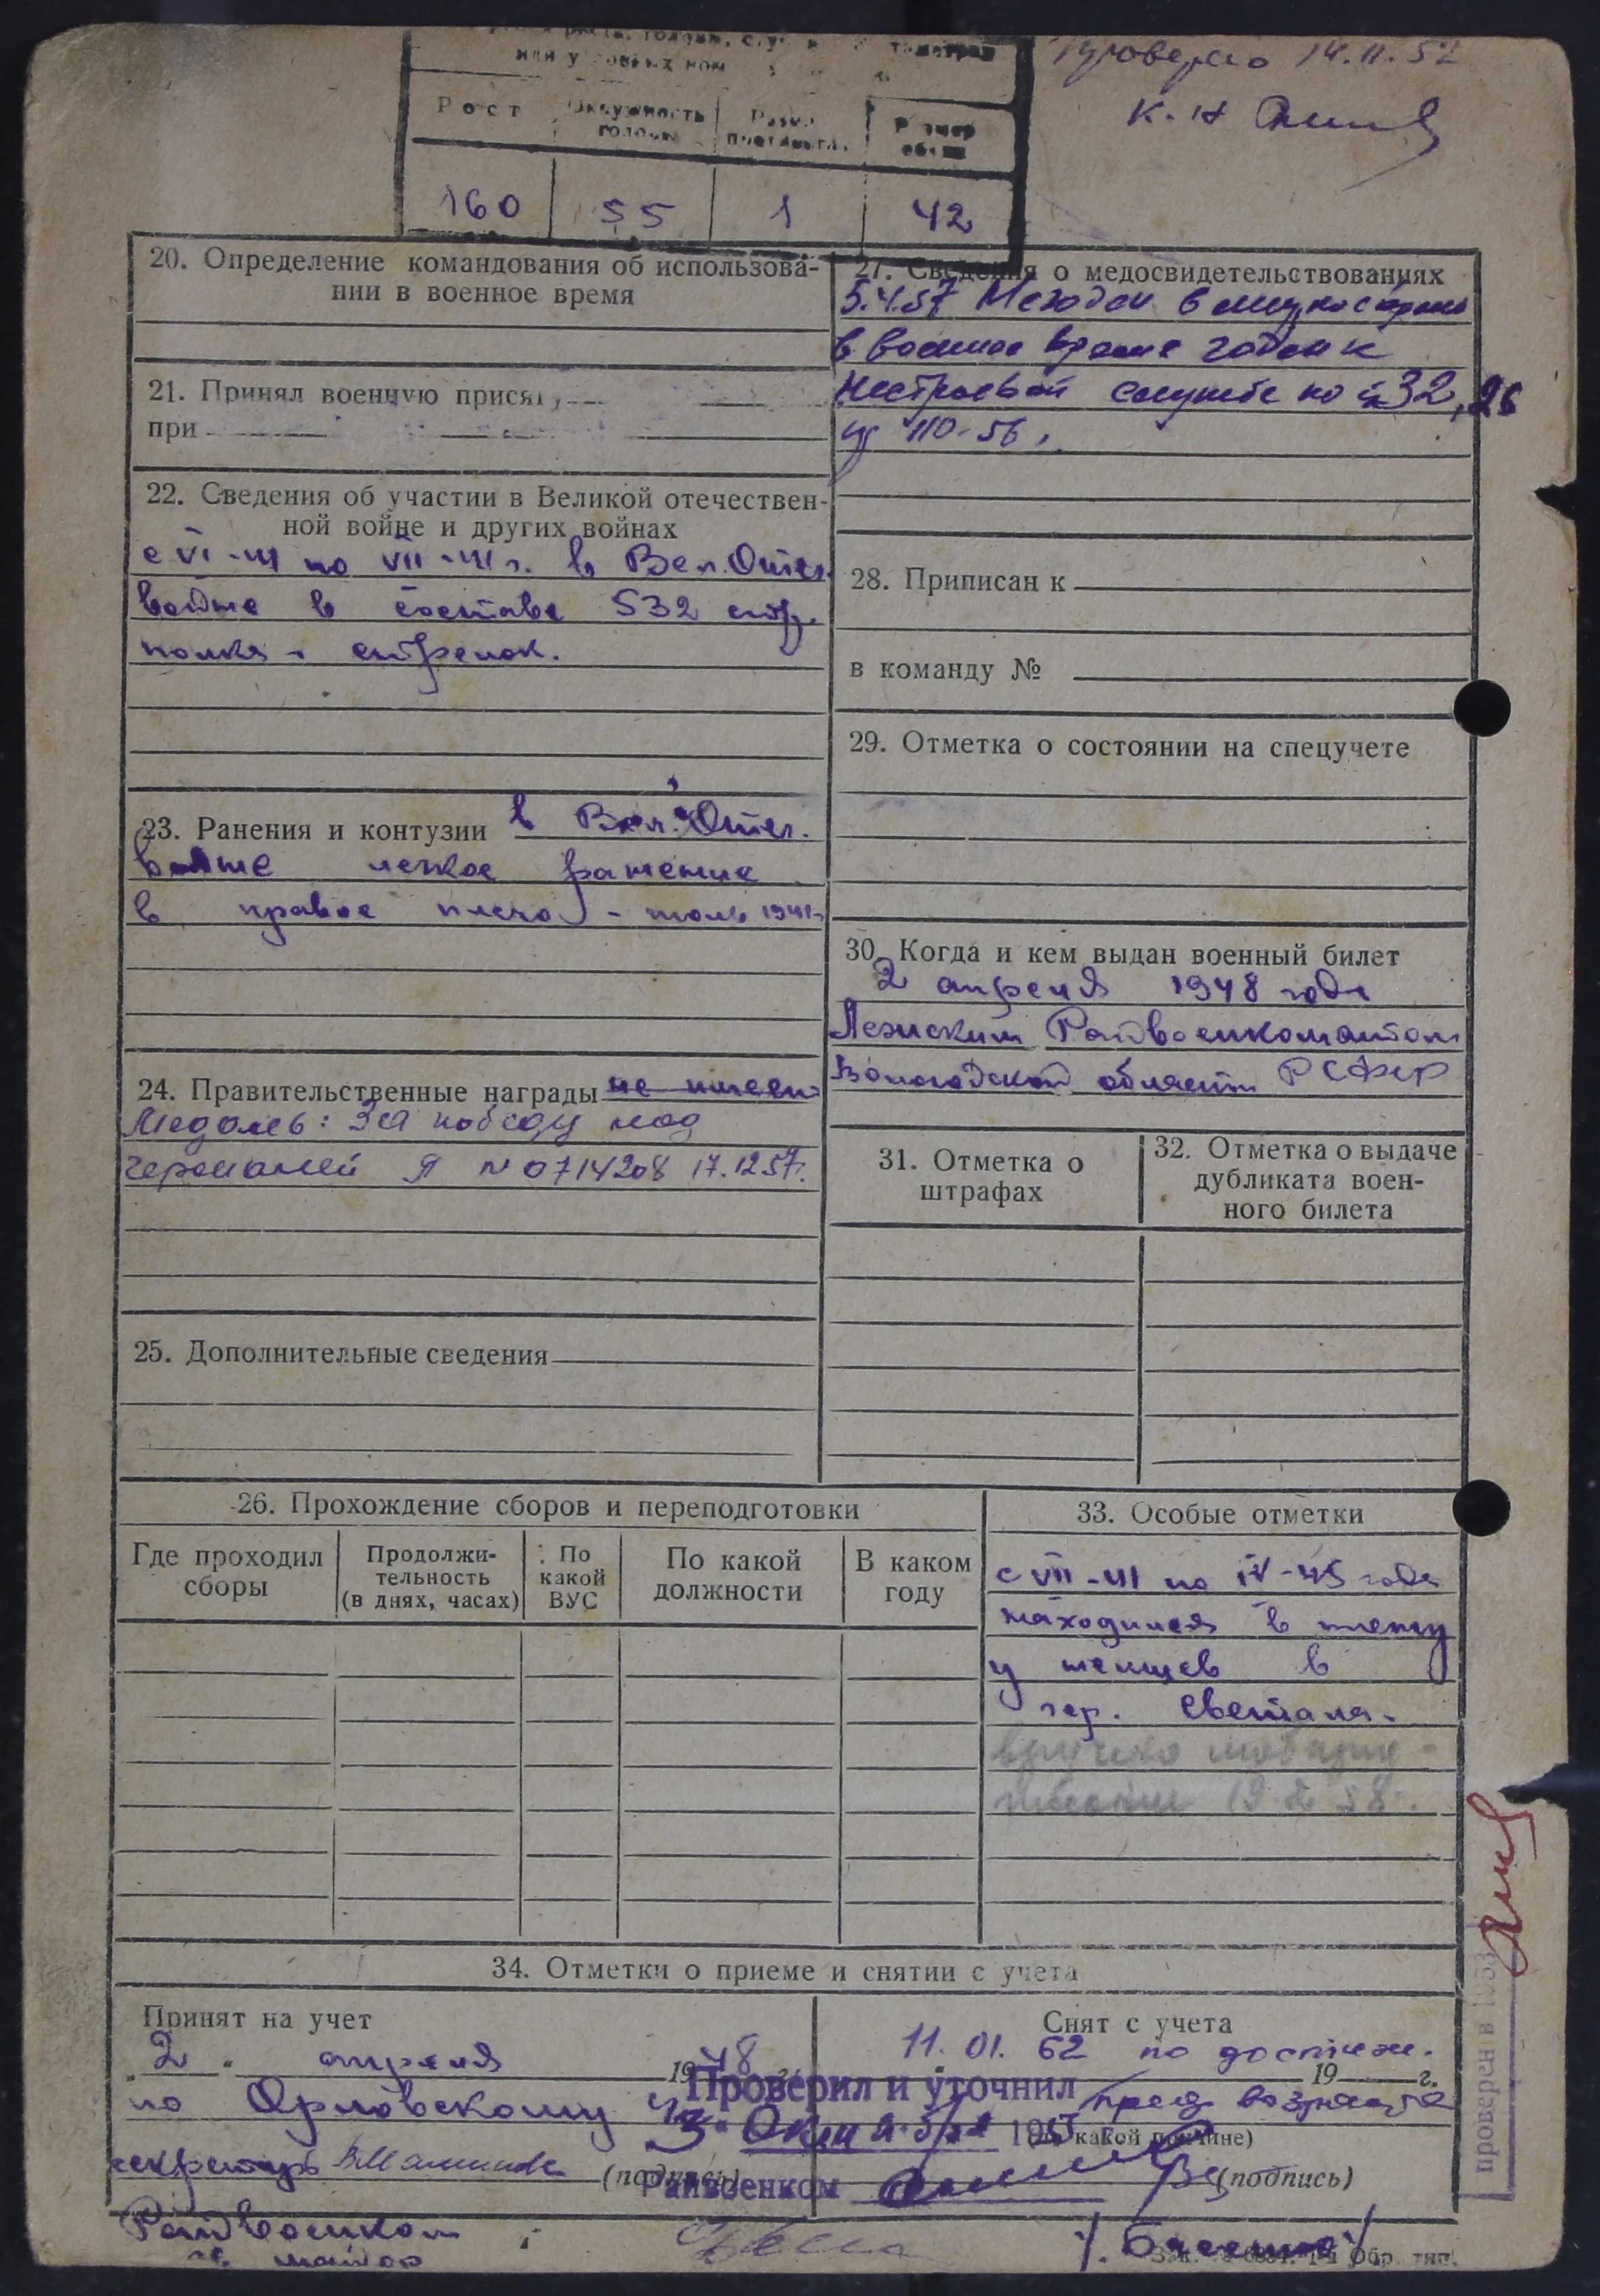 Проверено 14.11.52
К. Н
Рост
Окружность головы
Размер противогаза
Размер обуви
160 55 1 42
20. Определение командования об использова-
нии в военное время
21. Принял военную присягу
при
22. Сведения об участии в Великой отечествен-
ной войне и других войнах
с VI-41 по VII-41 г. в Вел. Отеч.
войне в составе 532 стр.
полка - стрелок.
23. Ранения и контузии в Вел. Отеч.
войне легкое ранение
в правое плечо - июль 1941 г.
24. Правительственные награды не имеет
Медаль: За победу над
Германией Я №0714208 17.12.57г.
25. Дополнительные сведения
27. Сведения о медосвидетельствованиях
5.4.57 Негоден в мирное время
в военное время годен к
нестроевой службе по ст 32, 26
пр 110-56.
28. Приписан к
в команду №
29. Отметка о состоянии на спецучете
30. Когда и кем выдан военный билет
2 апреля 1948 года
Лежским Райвоенкоматом
Вологодской области РСФСР
31. Отметка о
штрафах
32. Отметка о выдаче
дубликата воен-
ного билета
26. Прохождение сборов и переподготовки
Где проходил
сборы
Продолжи-
тельность
(в днях, часах)
По
какой
ВУС
По какой
должности
В каком
году
33. Особые отметки
с VII-41 по IV-45 года
находился в плену
у немцев в
гор.
вручено моб пред-
писание 19 2 58.
34. Отметки о приеме и снятии с учета
Принят на учет
2 апреля 1948
по Орловскому
секретарь
(подпись)
Райвоенком
майор
Снят с учета
11.01.62 по достиж.
19 г.
пред возраста
(по какой причине)
(подпись)
Проверил и уточнил
3 Октября 195
Райвоенком
проверен в 1953
Обр. тип.